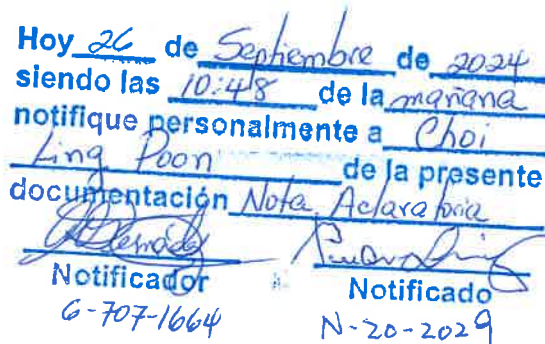 Hoy 26 de Septiembre de 2024
siendo las 10:48 de la mañana
notifique personalmente a Choi
Ling Poon de la presente
documentación Nota Aclaratoria
Notificador Notificado
6-707-1664 N-20-2029